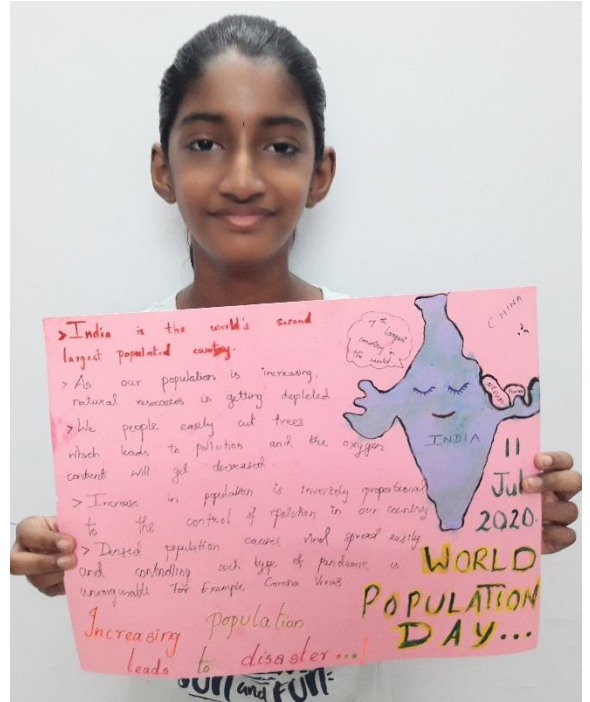 > India is the world's second
largest populated country.
> As our population is increasing,
natural resources is getting depleted
> We people easily cut trees
which leads to pollution and the oxygen
content will get decreased.
> Increase in population is inversly proportional
to the control of pollution in our country
> Densed population causes viral spread easily
and controlling such type of pandemic is
for Example Corona Virus
Increasing population
leads to disaster...!
7th largest
country in
the world
CHINA
NEPAL
INDIA
11
Jul
2020.
WORLD
POPULATION
DAY...
SUN and FUN